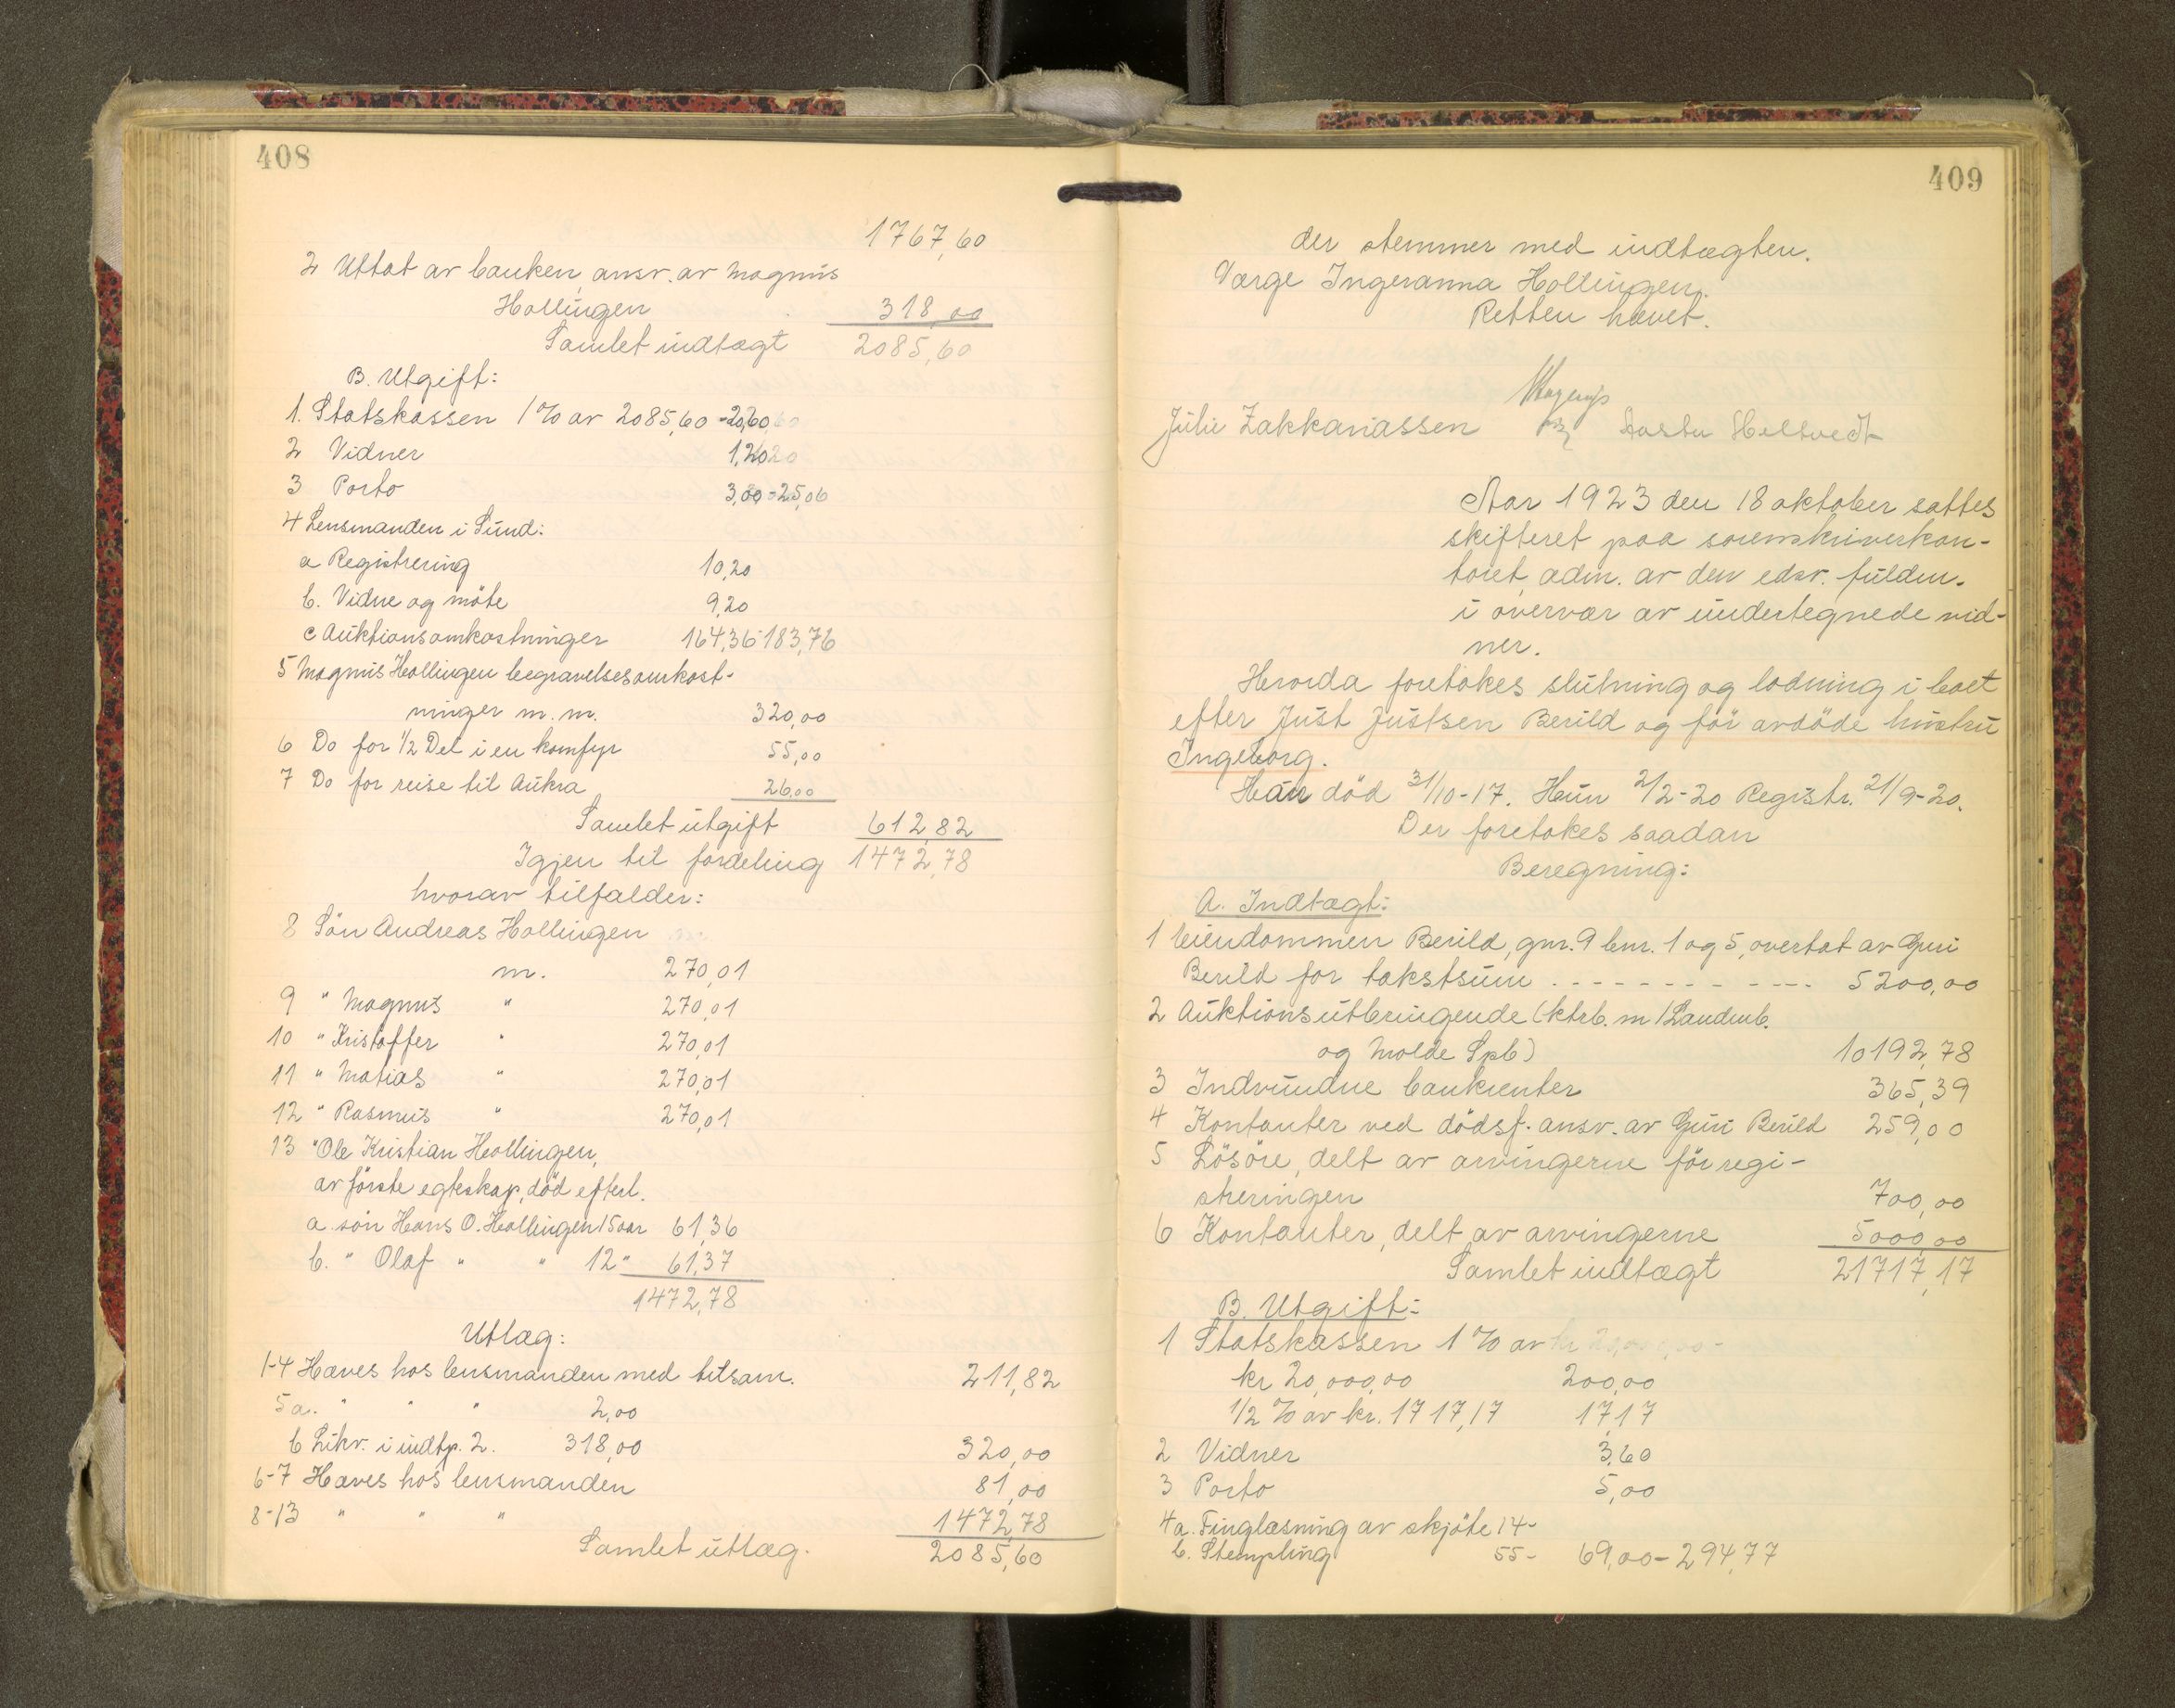 408
1767,60
2 Uttat av banken, ansv. av Magnus
Hollingen 318,00
Samlet indtægt 2085,60
B. Utgift:
1. Statskassen 1% av 2085,60 - 20,60
2 Vidner 1,20
3 Porto 3,00 - 25,06
4 Lensmanden i Sund:
a Registrering 10,20
b. Vidne og möte 9,20
c Auktionsomkostninger 164,36 183,76
5 Magnus Hollingen begravelsesomkost-
ninger m.m. 320,00
6 Do for 1/2 Del i en komfyr 55,00
7 Do for reise til Aukra 26,00
Samlet utgift 612,82
Igjen til fordeling 1472,78
hvorav tilfalder:
8 Sön Andreas Hollingen
m. 270,01
9 " Magnus " 270,01
10 " Kristoffer " 270,01
11 " Matias " 270,01
12 " Rasmus " 270,01
13 " Ole Kristian Hollingen,
av förste egteskap, död efterl.
a. sön Hans O. Hollingen 15 aar 61,36
b. " Olaf " " 12 " 61,37
1472,78
Utlæg:
1-4 Hæves hos lensmanden med tilsam. 211,82
5a. " " " 2,00
b Likv. i indtp. 2. 318,00 320,00
6-7 Hæves hos lensmanden 81,00
8-13 " " " 1472,78
Samlet utlæg. 2085,60
409
der stemmer med indtægten.
Værge Ingeranna Hollingen.
Retten hævet.
Julie Zakkariassen Heltvedt
Aar 1923 den 18 oktober sattes
skifteret paa sorenskriverkon-
toret, adm. av den edsv. fuldm.
i overvær av undertegnede vid-
ner.
Hvorda foretokes slutning og lodning i boet
efter Just Justsen Berild og för avdöde hustru
Ingeborg.
Han död 31/10-17. Hun 21/2-20 Registr. 21/9-20.
Der foretokes saadan
Beregning:
A. Indtægt:
1 Eiendommen Berild, gnr. 9 bnr. 1 og 5, overtat av Guri
Berild for takstsum 5200,00
2 Auktionsutbringende (ktrb. m/Landmb.
og Molde Spb) 10192,78
3 Indvundne bankrenter 365,39
4 Kontanter ved dödsf. ansv. av Guri Berild 259,00
5 Lösöre, delt av arvingerne för regi-
streringen 700,00
6 Kontanter, delt av arvingerne 5000,00
Samlet indtægt 21717,17
B. Utgift:
1 Statskassen 1% av
kr 20,000,00 200,00
1/2 % av kr. 1717,17 17,17
2 Vidner 3,60
3 Porto 5,00
4 a. Tinglæsning av skjöte 14-
b. Stempling 55- 69,00 - 294,77